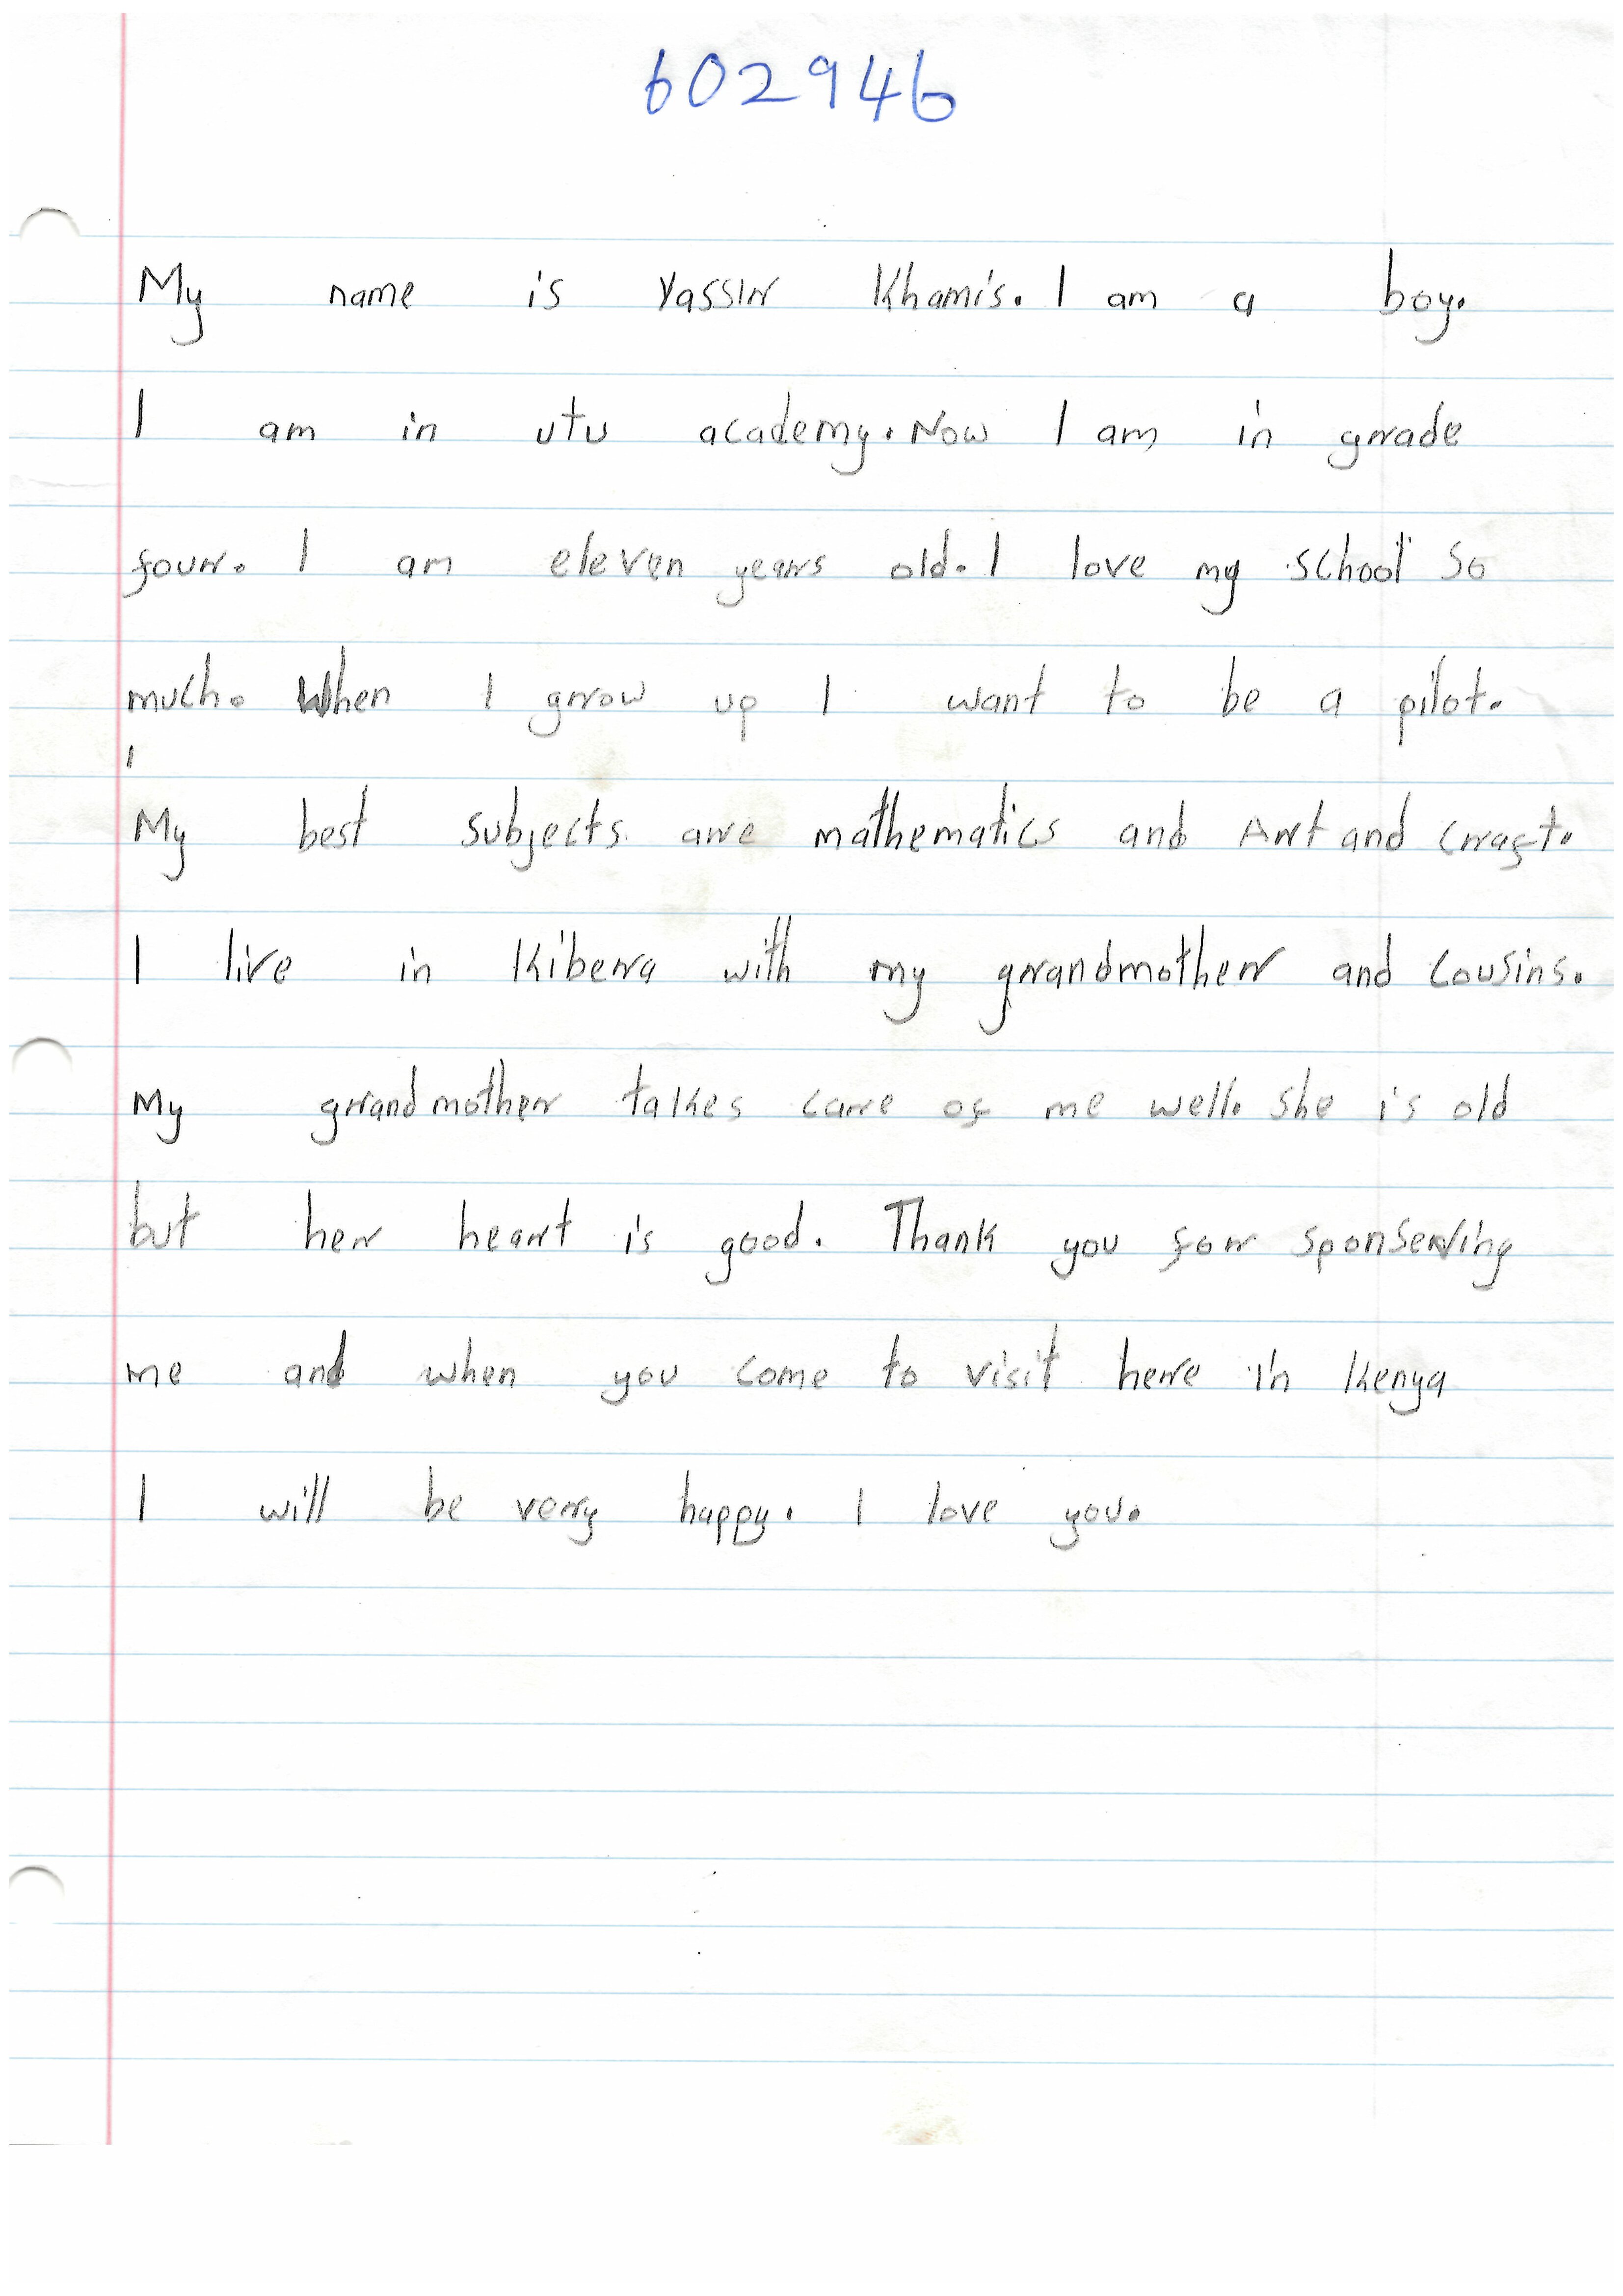 602946
My name is Yassin Khamis. I am a boy.
I am in utu academy. Now I am in grade
four. I am eleven years old. I love my school so
much. When I grow up I want to be a pilot.
My best subjects are mathematics and Art and craft.
I live in Kibera with my grandmother and cousins.
My grandmother takes care of me well. She is old
but her heart is good. Thank you for sponsering
me and when you come to visit here in Kenya
I will be very happy. I love you.